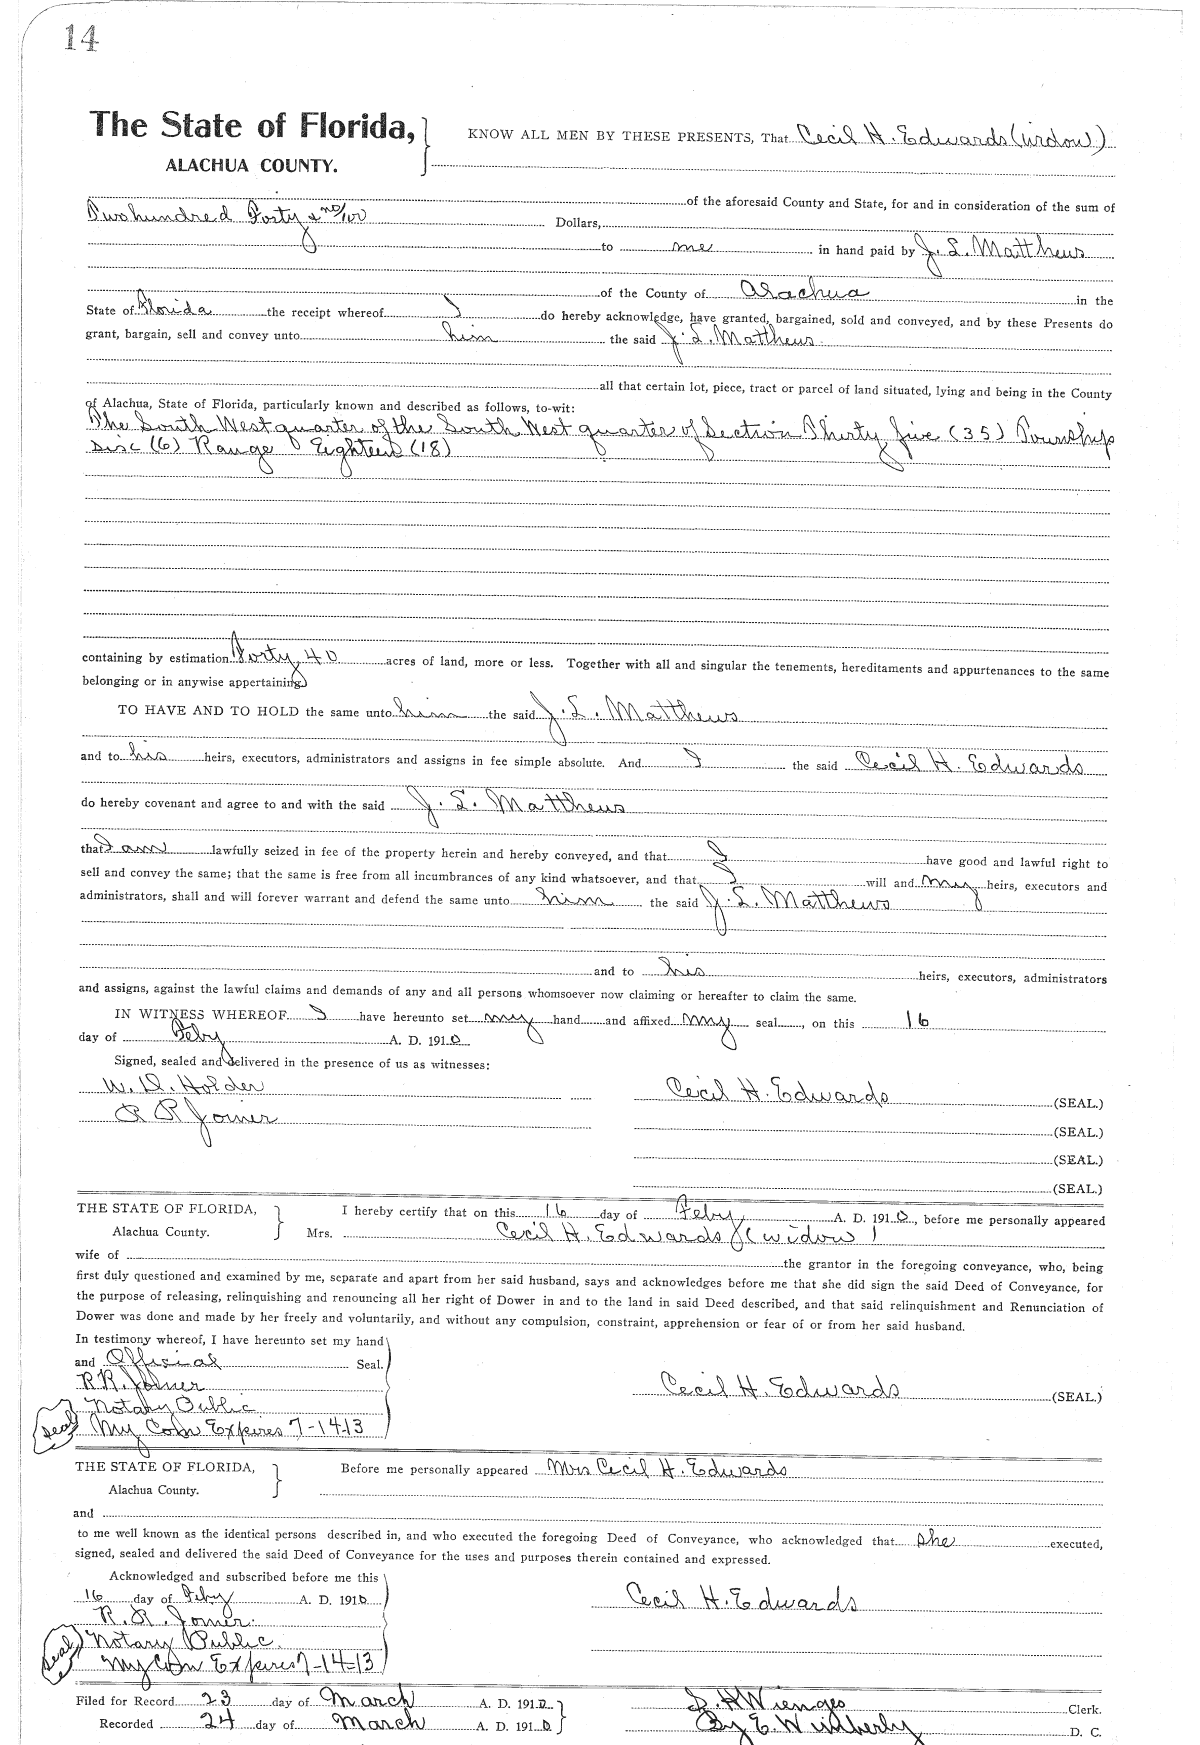 14
The State of Florida,
ALACHUA COUNTY.
KNOW ALL MEN BY THESE PRESENTS, That Cecil H. Edwards (widow)
of the aforesaid County and State, for and in consideration of the sum of
Two hundred Forty & no/100 Dollars,
to me in hand paid by J. L. Matthews
of the County of Alachua in the
State of Florida the receipt whereof I do hereby acknowledge, have granted, bargained, sold and conveyed, and by these Presents do
grant, bargain, sell and convey unto him the said J. L. Matthews
all that certain lot, piece, tract or parcel of land situated, lying and being in the County
of Alachua, State of Florida, particularly known and described as follows, to-wit:
The South West quarter of the South West quarter of Section Thirty five (35) Township
Six (6) Range Eighteen (18)
containing by estimation Forty 40 acres of land, more or less. Together with all and singular the tenements, hereditaments and appurtenances to the same
belonging or in anywise appertaining
TO HAVE AND TO HOLD the same unto him the said J. L. Matthews
and to his heirs, executors, administrators and assigns in fee simple absolute. And I the said Cecil H. Edwards
do hereby covenant and agree to and with the said J. L. Matthews
that I am lawfully seized in fee of the property herein and hereby conveyed, and that I have good and lawful right to
sell and convey the same; that the same is free from all incumbrances of any kind whatsoever, and that I will and my heirs, executors and
administrators, shall and will forever warrant and defend the same unto him the said J. L. Matthews
and to his heirs, executors, administrators
and assigns, against the lawful claims and demands of any and all persons whomsoever now claiming or hereafter to claim the same.
IN WITNESS WHEREOF I have hereunto set my hand and affixed my seal, on this 16
day of Feby A. D. 1910
Signed, sealed and delivered in the presence of us as witnesses:
W. D. Holder
R R Joiner
Cecil H. Edwards (SEAL.)
(SEAL.)
(SEAL.)
(SEAL.)
THE STATE OF FLORIDA,
Alachua County.
I hereby certify that on this 16 day of Feby A. D. 1910, before me personally appeared
Mrs. Cecil H. Edwards (widow)
wife of the grantor in the foregoing conveyance, who, being
first duly questioned and examined by me, separate and apart from her said husband, says and acknowledges before me that she did sign the said Deed of Conveyance, for
the purpose of releasing, relinquishing and renouncing all her right of Dower in and to the land in said Deed described, and that said relinquishment and Renunciation of
Dower was done and made by her freely and voluntarily, and without any compulsion, constraint, apprehension or fear of or from her said husband.
In testimony whereof, I have hereunto set my hand
and Official Seal.
R R. Joiner
Notary Public
Seal My Com Expires 7-14-13
Cecil H. Edwards (SEAL.)
THE STATE OF FLORIDA,
Alachua County.
Before me personally appeared Mrs Cecil H. Edwards
and
to me well known as the identical persons described in, and who executed the foregoing Deed of Conveyance, who acknowledged that she executed,
signed, sealed and delivered the said Deed of Conveyance for the uses and purposes therein contained and expressed.
Acknowledged and subscribed before me this
16 day of Feby A. D. 1910
R. R. Joiner
Notary Public
Seal My Com Expires 7-14-13
Cecil H. Edwards
Filed for Record 23 day of March A. D. 1910
Recorded 24 day of March A. D. 1910
S. H. Wienges Clerk.
By E. Wimberly D. C.